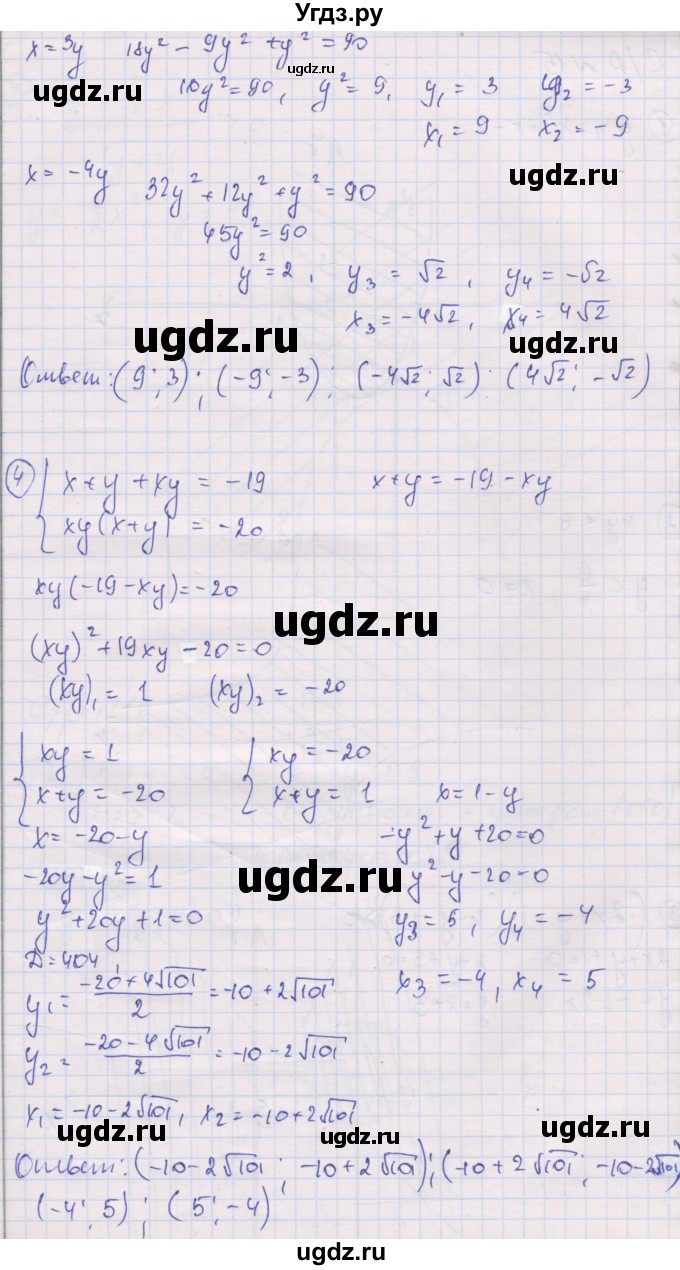 Угдз.ру
x = 3y 18y² − 9y² + y² = 90
ugdz.ru
ugdz.ru
10y² = 90, y² = 9, y₁ = 3 y₂ = −3
ugdz.ru
x₁ = 9 x₂ = −9
x = −4y 32y² + 12y² + y² = 90
ugdz.ru
45y² = 90
y² = 2, y₃ = √2, y₄ = −√2
x₃ = −4√2, x₄ = 4√2
ugdz.ru
ugdz.ru
Ответ: (9; 3); (−9; −3); (−4√2; √2); (4√2; −√2)
④ { x + y + xy = −19 x + y = −19 − xy
xy(x + y) = −20
xy(−19 − xy) = −20
ugdz.ru
ugdz.ru
(xy)² + 19xy − 20 = 0
(xy)₁ = 1 (xy)₂ = −20
{ xy = 1 { xy = −20
x + y = −20 x + y = 1 x = 1 − y
ugdz.ru
x = −20 − y −y² + y + 20 = 0
−20y − y² = 1 y² − y − 20 = 0
ugdz.ru
ugdz.ru
y² + 20y + 1 = 0 y₃ = 5, y₄ = −4
D = 404
y₁ = (−20 + 4√101)/2 = −10 + 2√101 x₃ = −4, x₄ = 5
y₂ = (−20 − 4√101)/2 = −10 − 2√101
x₁ = −10 − 2√101, x₂ = −10 + 2√101
ugdz.ru
ugdz.ru
ugdz.ru
Ответ: (−10 − 2√101; −10 + 2√101); (−10 + 2√101; −10 − 2√101)
(−4; 5); (5; −4)
ugdz.ru
ugdz.ru